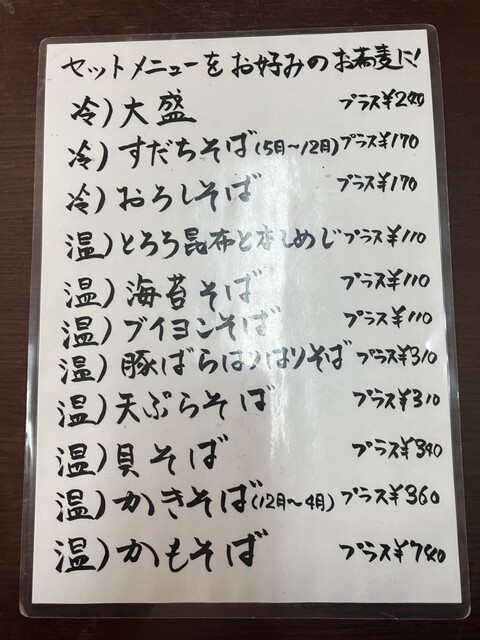 セットメニューをお好みのお蕎麦に!
冷)大盛 プラス¥240
冷)すだちそば(5月~12月)プラス¥170
冷)おろしそば プラス¥170
温)とろろ昆布と本しめじ プラス¥110
温)海苔そば プラス¥110
温)ブイヨンそば プラス¥110
温)豚ばらはりはりそば プラス¥310
温)天ぷらそば プラス¥310
温)貝そば プラス¥340
温)かきそば(12月~4月) プラス¥360
温)かもそば プラス¥740